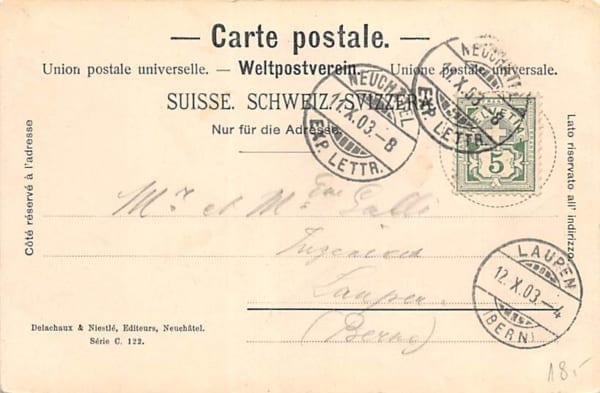 — Carte postale. —
Union postale universelle. — Weltpostverein. — Unione postale universale.
SUISSE. SCHWEIZ. SVIZZERA.
Nur für die Adresse.
NEUCHATEL
12.X.03.-8
EXP. LETTR.
NEUCHATEL
12.X.03.-8
EXP. LETTR.
HELVETIA
5
Côté réservé à l'adresse
Lato riservato all' indirizzo
Mr et Me
Ingénieur
Laupen
(Berne)
LAUPEN
12.X.03.-4
(BERN)
Delachaux & Niestlé, Editeurs, Neuchâtel.
Série C. 122.
18.-